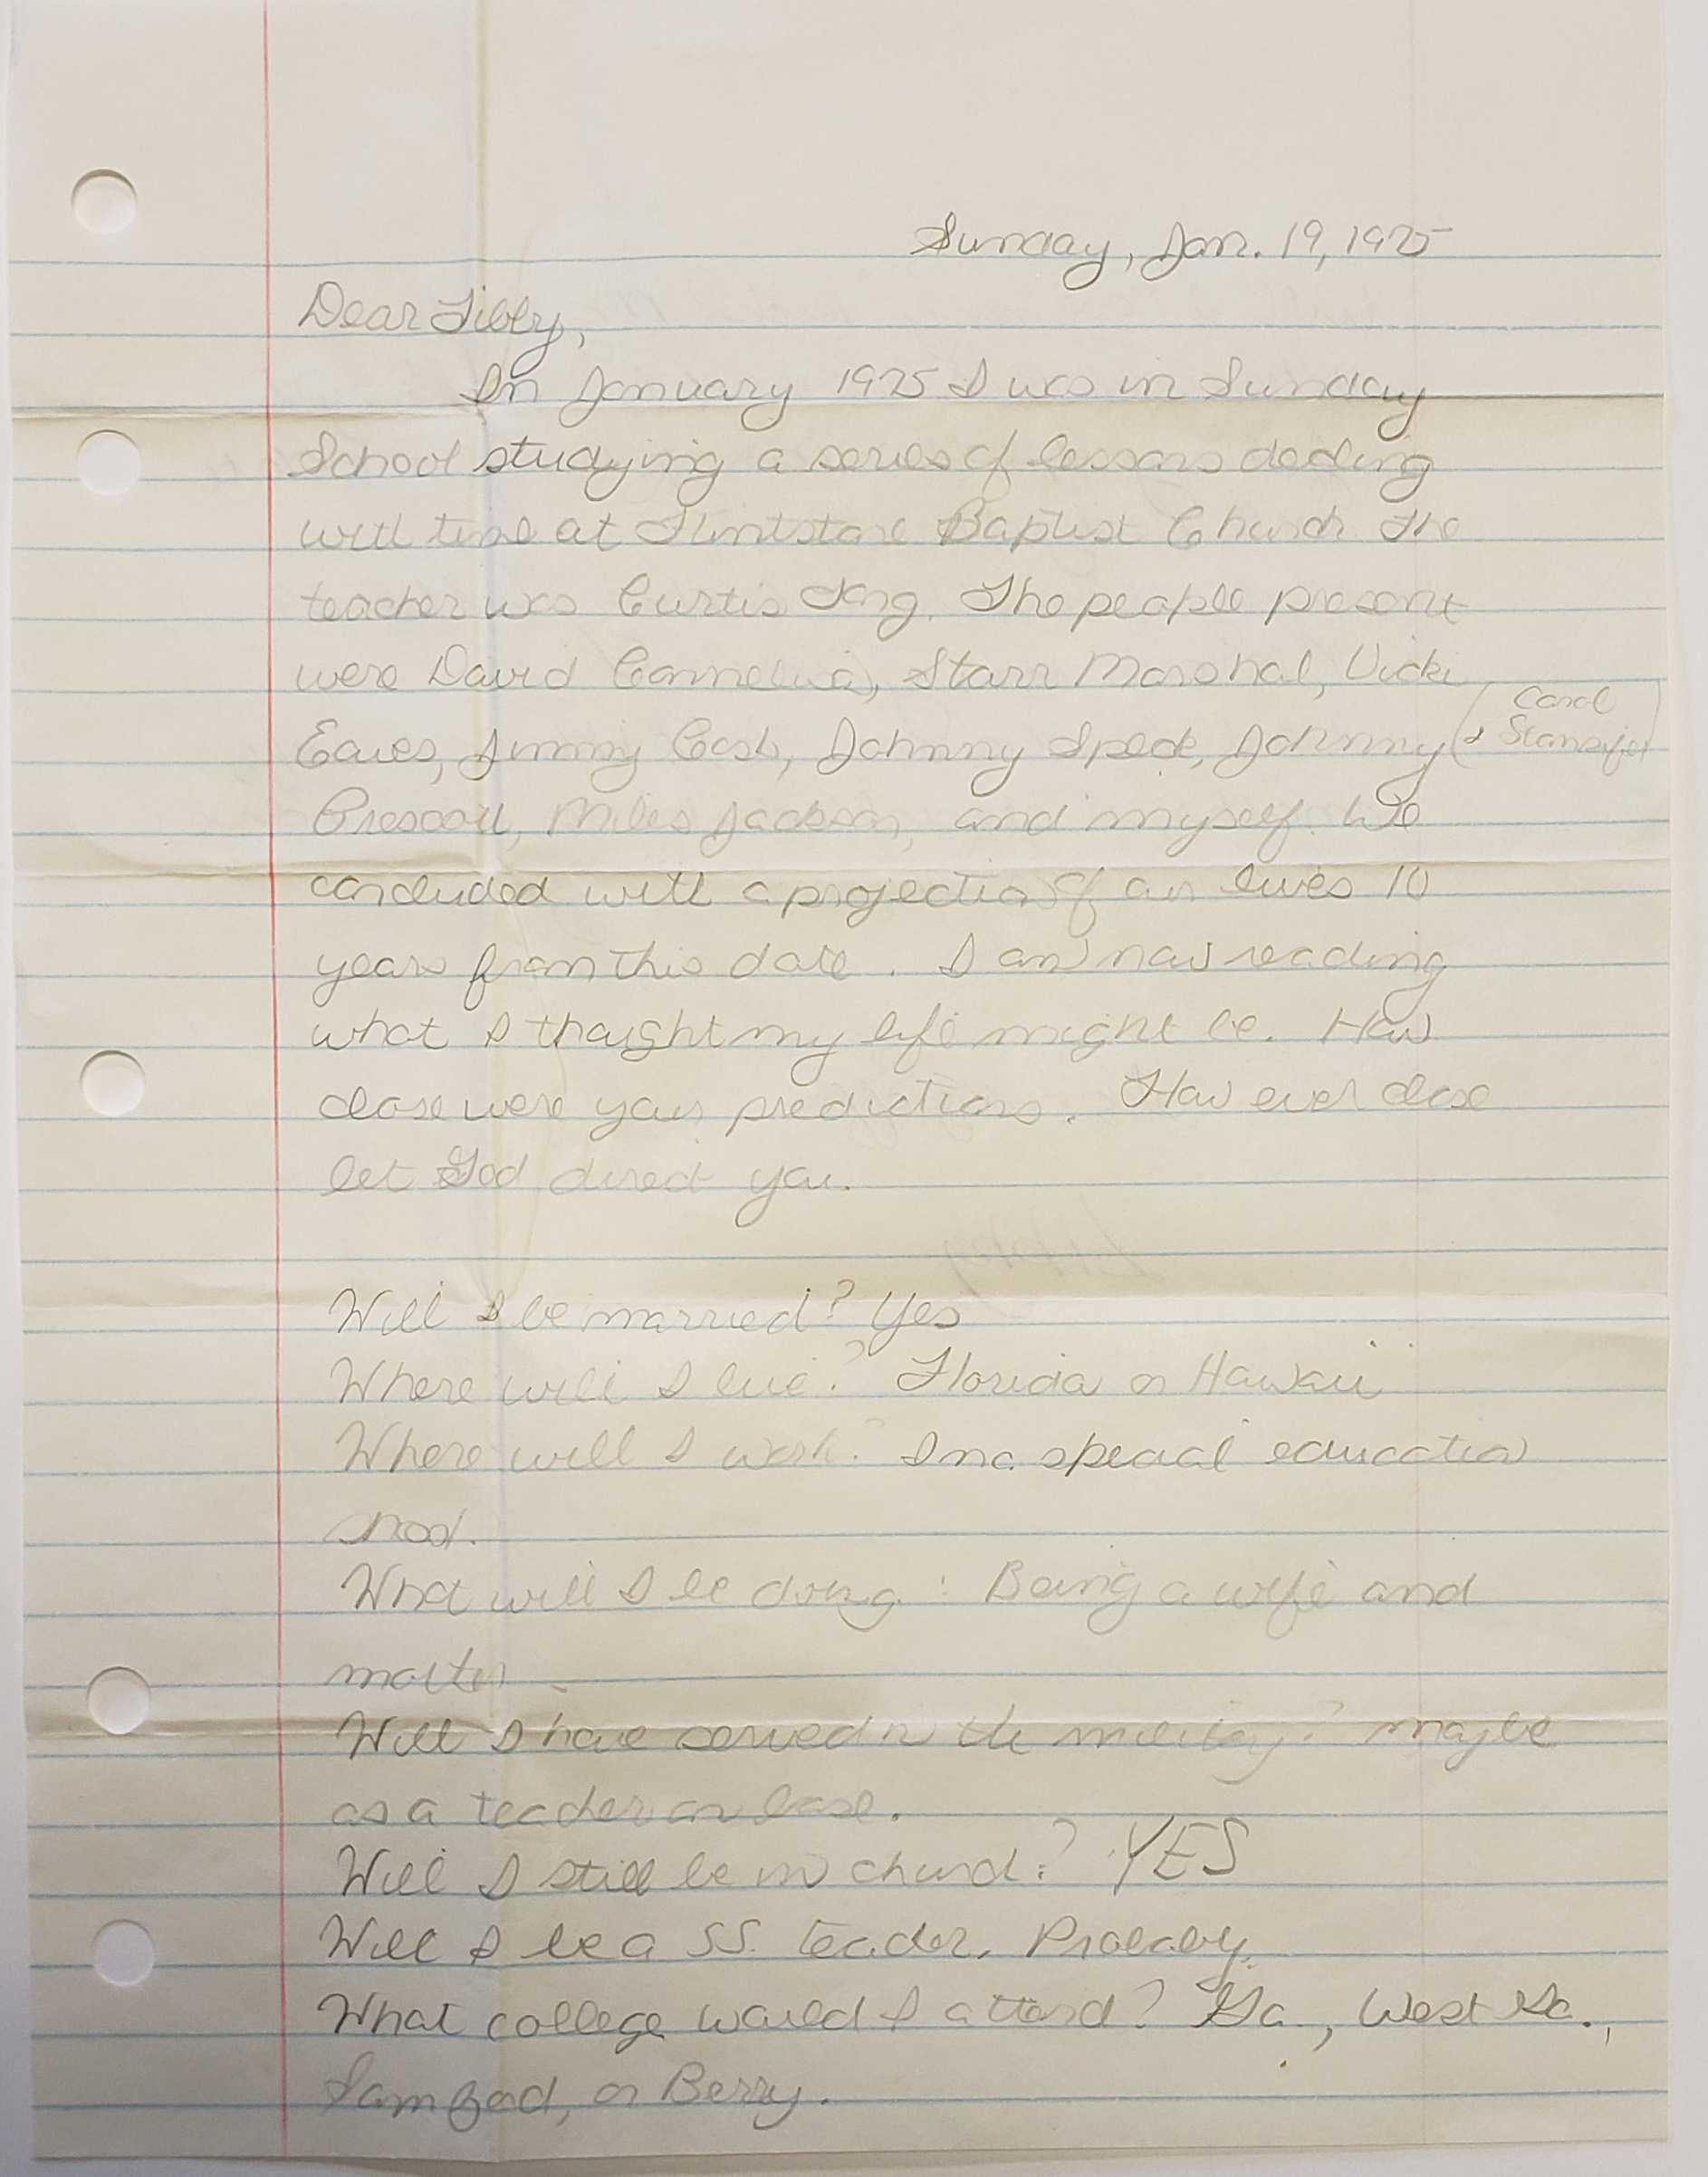 Sunday, Jan. 19, 1975
Dear Libby,
In January 1975 I was in Sunday
School studying a series of lessons dealing
with time at Flintstone Baptist Church. The
teacher was Curtis King. The people present
were David Starr Marshal, Vicki
Eaves, Jimmy Cash, Johnny Speck, Johnny (& Carol
Prescott, Miles Jackson, and myself. We
concluded with a projection of our lives 10
years from this date. I am now reading
what I thought my life might be. How
close were your predictions. How ever close
let God direct you.
Will I be married? Yes
Where will I live? Florida or Hawaii
Where will I work? In a special education
school.
What will I be doing? Being a wife and
mother.
Will I have served in the military? maybe
as a teacher on base.
Will I still be in church? YES
Will I be a SS. teacher. Probably.
What college would I attend? Ga., West Ga.,
Samford, or Berry.